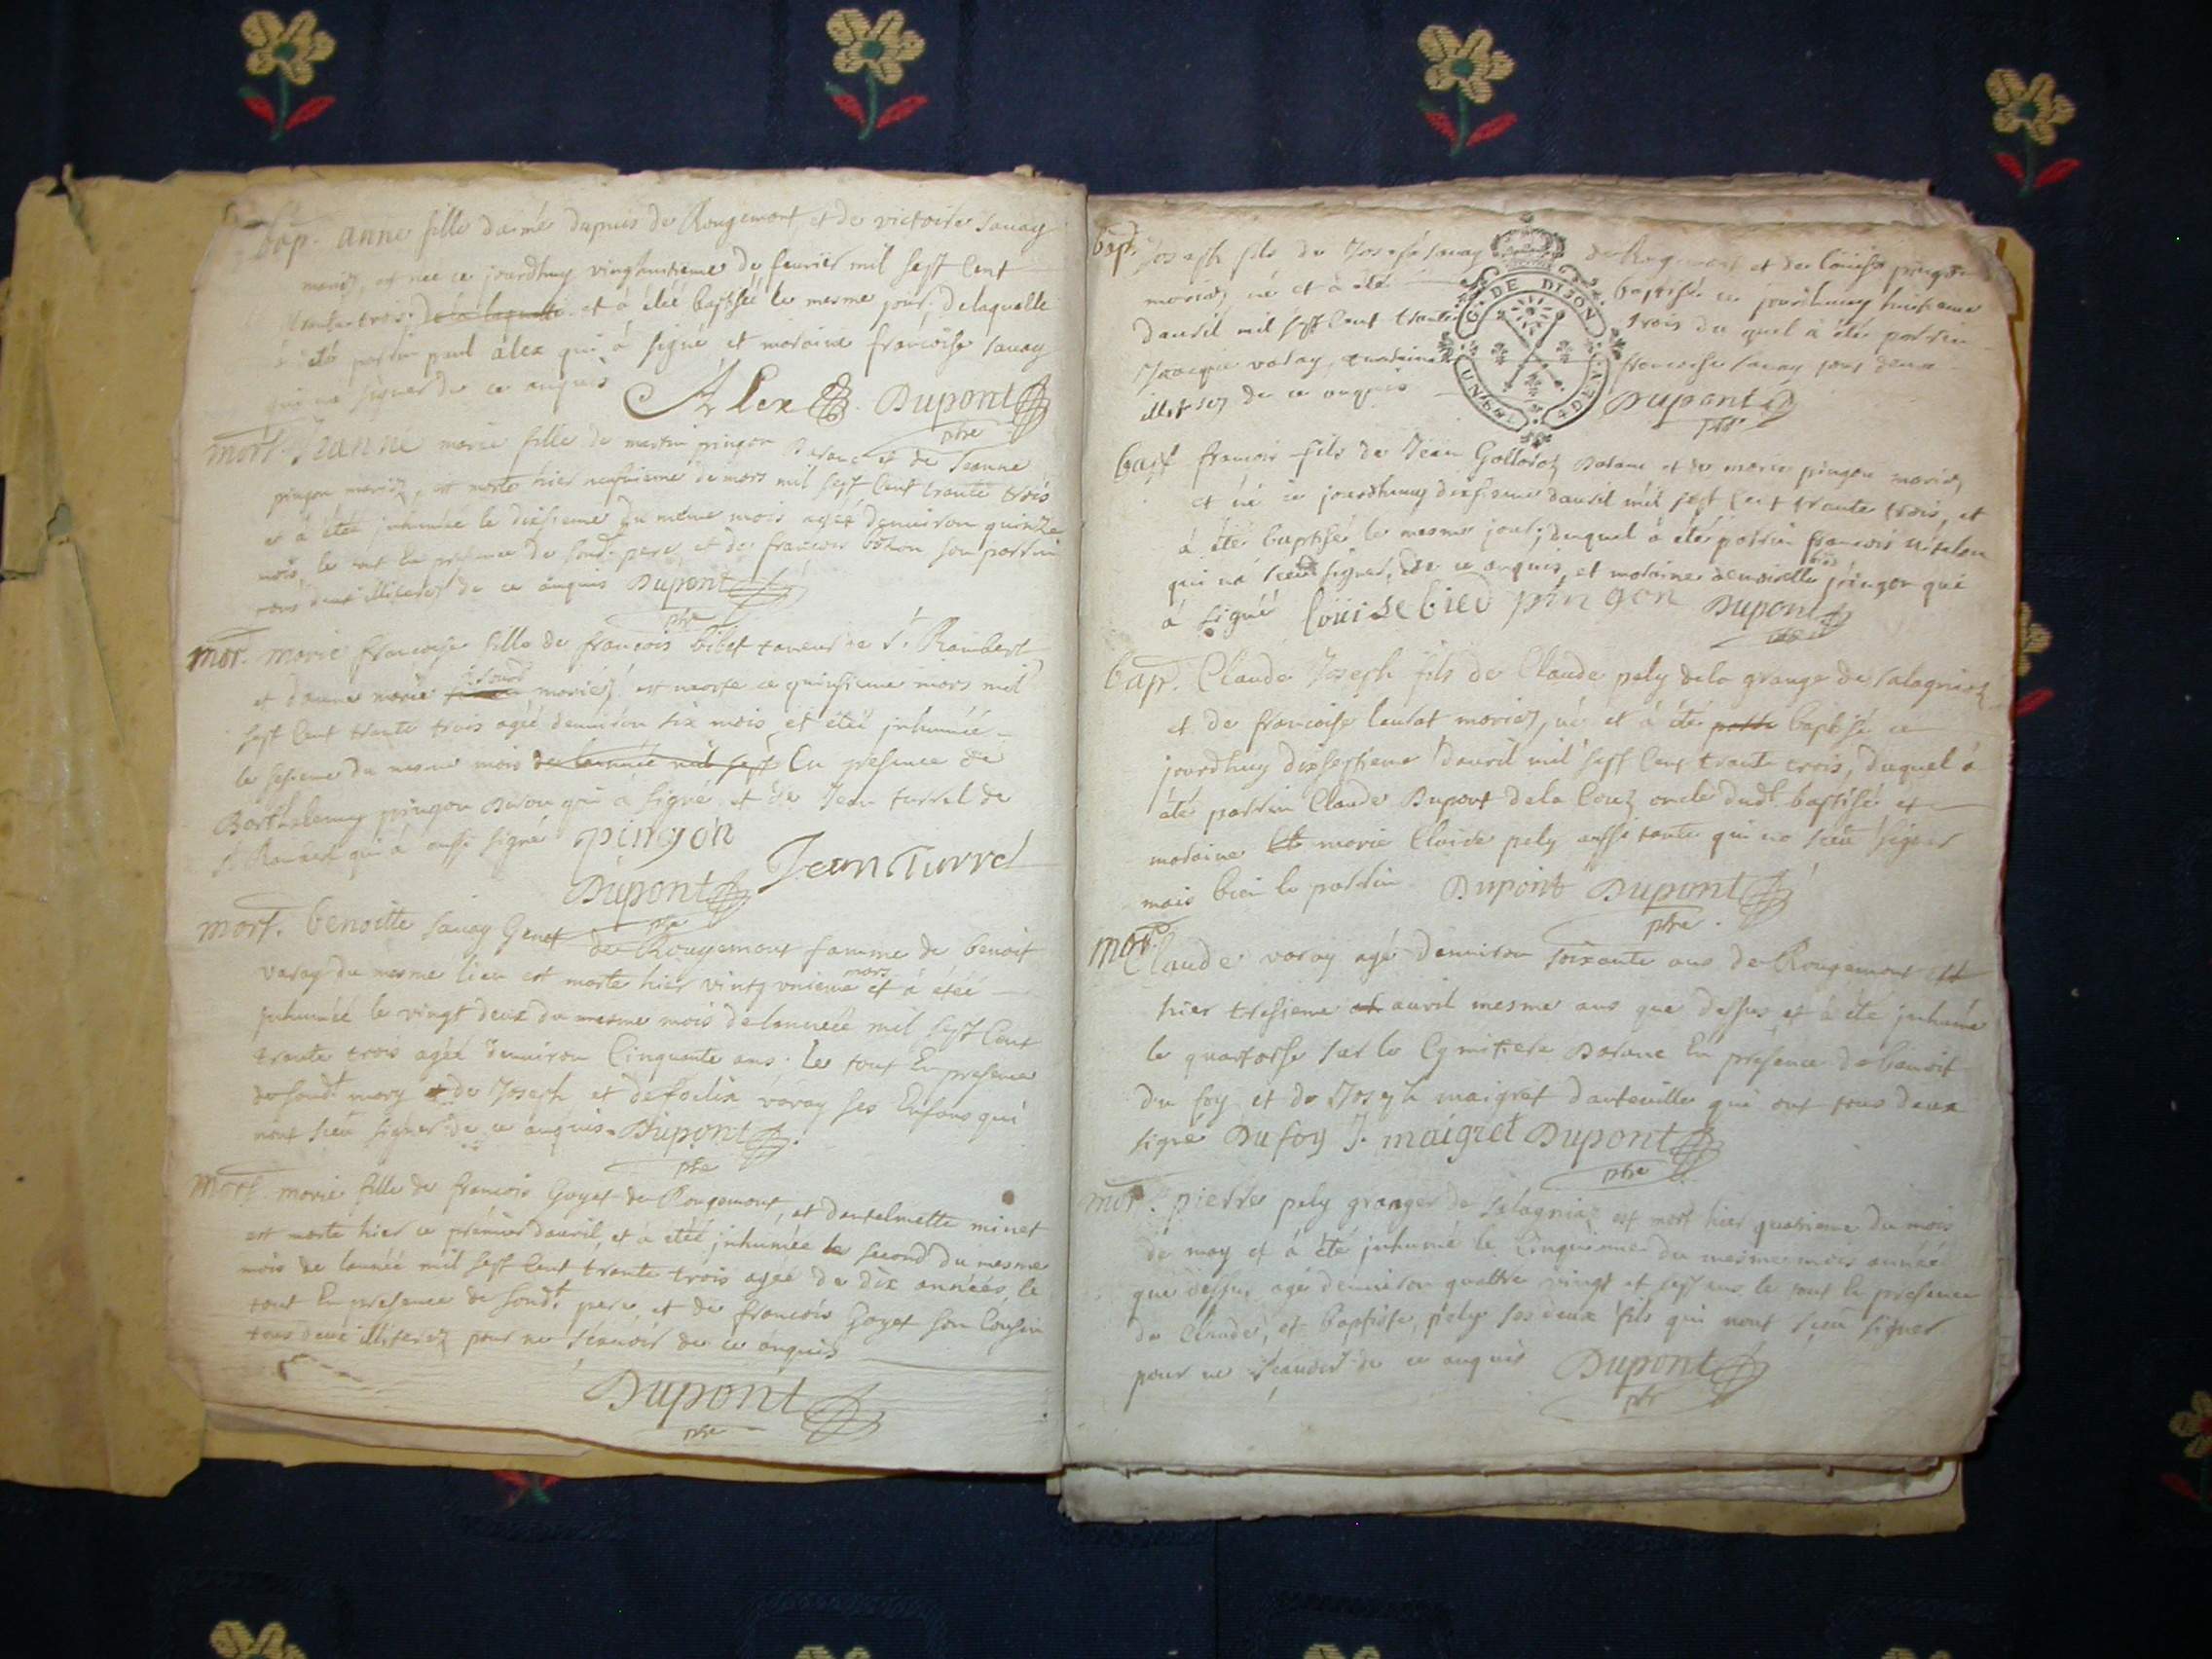 bap. anne fille daimé dupuis de Rougemont et de victoire sauay
mariez, est née ce jourdhuy vinghuitieme de feurier mil sept Cent
trante trois, de la laquelle et à étéé baptiséé le mesme jour, delaquelle
à été parrin paul alex qui à signé et maraine francoise sauay
qui ne signer de ce anquis Alex Dupont
ptre
mort. Jeanne marie fille de martin pingon Darane et de Jeanne
pingon mariez, est morte hier neufuieme de mars mil sept Cent trante trois
et à étéé inhuméé le dixieme du méme mois agéé denuiron quinze
mois, le tout En presence de soud. pere, et de francois bozon son parrin
tous deux illiterez de ce anquis Dupont
ptre
mor. marie francoise fille de francois bibet taneur de St. Rambert
et danne marie mariez est morte ce quinsieme mars mil
sept Cent trante trois agéé denuiron six mois et étéé inhuméé
le sesieme du mesme mois de lannéé mil sept En presence de
Barthelemy pingon Daran qui à signé et de Jean turrel de
St Rambert qui à aussi signé pingon
Jean Turrel
Dupont
ptre
mort. benoitte sauay Genet de Rougemont famme de benoit
varay du mesme lieu est morte hier vintg vnieme mars et à étéé
inhuméé le vingt deux du mesme mois de lannéé mil sept Cent
trante trois agéé denuiron Cinquante ans. le tout En presence
de soud. mary et de Joseph et de foelix varay ses Enfans qui
nont sceu signer de ce anquis Dupont
ptre
mort. marie fille de francois Goyet de Rougemont, et dantelmette minet
est morte hier ce prémier dauril, et à étéé inhuméé le second du mesme
mois de lannéé mil sept Cent trante trois agéé de dix annéés, le
tout En presence de soud. pere, et de francois Goyet son Cousin
tous deux illiterez pour ne scauoir de ce anquis
Dupont
ptre
bap. Joseph fils de Joseph sauay de Rogemont et de Louise pingon
mariez né et à été baptisé ce jourdhuy huitieme
dauril mil sept Cent trante trois du quel à été parrin
Jacque varay, et maraine francoise sauay tous deux
illiterez de ce anquis Dupont
ptre
G. DE DIJON
bap francois fils de Jean Gallorez Darane et de marie pingon mariez
et né ce jourdhuy dixsieme dauril mil sept Cent trante trois, et
à été baptisé le mesme jour; duquel à été parrin francois
qui na sceu signer, de ce anquis, et maraine demoiselle pingon qui
à signé Louise bied pingon Dupont
ptre
bap. Claude Joseph fils de Claude pely dela grange de salagniez
et de francoise leurat mariez, né et à été baptisé ce
jourdhuy dixseptieme dauril mil sept Cent trante trois, duquel à
été parrin Claude Dupont dela Couz oncle dudt. baptisé et
maraine marie Claide pely aussi tante qui na sceu signer
mais bien le parrin Dupont Dupont
ptre
mor. Claude varay agé denuiron soixante ans de Rougemont est
hier tresieme auril mesme ans que dessus et à été inhumé
le quartorse sur le Cymitiere Darane En presence de benoit
du foy et de Joseph maigret danteuille qui ont tous deux
signé Du foy J. maigret Dupont
ptre
mor. pierre pely granger de salagniez est mort hier quatrieme du mois
de may et à été inhumé le Cinquieme du mesme mois année
que dessus, agé denuiron quattre vingt et sept ans le tout En presence
de Claude, et baptiste, pely ses deux fils qui nont sceu signer
pour ne scauoir de ce anquis Dupont
ptre